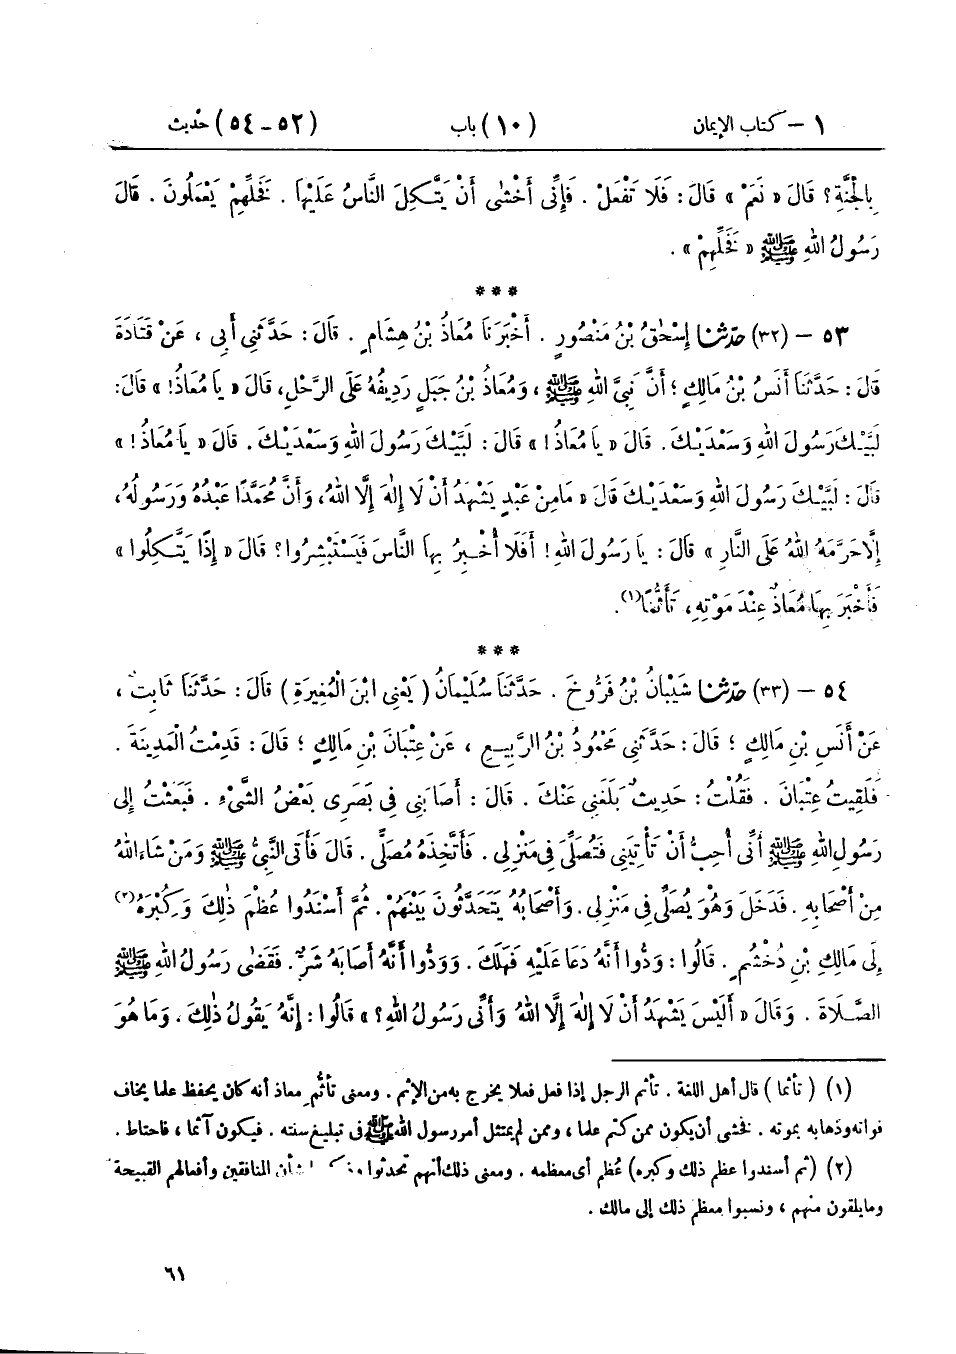 ١ – كتاب الإيمان (١٠) باب (٥٢-٥٤) حديث
بِالْجَنَّةِ؟ قَالَ « نَعَمْ » قَالَ : فَلَا تَفْعَلْ . فَإِنِّى أَخْشٰى أَنْ يَتَّكِلَ النَّاسُ عَلَيْهَا . فَخَلِّهِمْ يَعْمَلُونَ . قَالَ
رَسُولُ اللهِ ﷺ « فَخَلِّهِمْ » .
* * *
٥٣ – (٣٢) حَدَّثَنَا إِسْحٰقُ بْنُ مَنْصُورٍ . أَخْبَرَنَا مُعَاذُ بْنُ هِشَامٍ . قَالَ : حَدَّثَنِى أَبِى ، عَنْ قَتَادَةَ
قَالَ : حَدَّثَنَا أَنَسُ بْنُ مَالِكٍ ؛ أَنَّ نَبِىَّ اللهِ ﷺ ، وَمُعَاذُ بْنُ جَبَلٍ رَدِيفُهُ عَلَى الرَّحْلِ، قَالَ « يَا مُعَاذُ! » قَالَ:
لَبَّيْكَ رَسُولَ اللهِ وَسَعْدَيْكَ. قَالَ « يَا مُعَاذُ ! » قَالَ : لَبَّيْكَ رَسُولَ اللهِ وَسَعْدَيْكَ . قَالَ « يَا مُعَاذُ ! »
قَالَ : لَبَّيْكَ رَسُولَ اللهِ وَسَعْدَيْكَ قَالَ « مَا مِنْ عَبْدٍ يَشْهَدُ أَنْ لَا إِلٰهَ إِلَّا اللهُ، وَأَنَّ مُحَمَّدًا عَبْدُهُ وَرَسُولُهُ،
إِلَّا حَرَّمَهُ اللهُ عَلَى النَّارِ » قَالَ : يَا رَسُولَ اللهِ! أَفَلَا أُخْبِرُ بِهَا النَّاسَ فَيَسْتَبْشِرُوا؟ قَالَ « إِذًا يَتَّكِلُوا »
فَأَخْبَرَ بِهَا مُعَاذٌ عِنْدَ مَوْتِهِ، تَأَثُّمًا(١).
* * *
٥٤ – (٣٣) حَدَّثَنَا شَيْبَانُ بْنُ فَرُّوخَ . حَدَّثَنَا سُلَيْمَانُ ( يَعْنِى ابْنَ الْمُغِيرَةِ ) قَالَ : حَدَّثَنَا ثَابِتٌ ،
عَنْ أَنَسِ بْنِ مَالِكٍ ؛ قَالَ : حَدَّثَنِى مَحْمُودُ بْنُ الرَّبِيعِ ، عَنْ عِتْبَانَ بْنِ مَالِكٍ ؛ قَالَ : قَدِمْتُ الْمَدِينَةَ .
فَلَقِيتُ عِتْبَانَ . فَقُلْتُ : حَدِيثٌ بَلَغَنِى عَنْكَ . قَالَ : أَصَابَنِى فِى بَصَرِى بَعْضُ الشَّىْءِ . فَبَعَثْتُ إِلَى
رَسُولِ اللهِ ﷺ أَنِّى أُحِبُّ أَنْ تَأْتِيَنِى فَتُصَلِّىَ فِى مَنْزِلِى . فَأَتَّخِذَهُ مُصَلًّى . قَالَ فَأَتَى النَّبِىُّ ﷺ وَمَنْ شَاءَ اللهُ
مِنْ أَصْحَابِهِ . فَدَخَلَ وَهُوَ يُصَلِّى فِى مَنْزِلِى . وَأَصْحَابُهُ يَتَحَدَّثُونَ بَيْنَهُمْ . ثُمَّ أَسْنَدُوا عُظْمَ ذٰلِكَ وَكُبْرَهُ(٢)
إِلَى مَالِكِ بْنِ دُخْشُمٍ . قَالُوا : وَدُّوا أَنَّهُ دَعَا عَلَيْهِ فَهَلَكَ . وَوَدُّوا أَنَّهُ أَصَابَهُ شَرٌّ . فَقَضٰى رَسُولُ اللهِ ﷺ
الصَّلَاةَ . وَقَالَ « أَلَيْسَ يَشْهَدُ أَنْ لَا إِلٰهَ إِلَّا اللهُ وَأَنِّى رَسُولُ اللهِ؟ » قَالُوا : إِنَّهُ يَقُولُ ذٰلِكَ . وَمَا هُوَ
(١) ( تأثما ) قال أهل اللغة . تأثم الرجل إذا فعل فعلا يخرج به من الإثم . ومعنى تأثُّم معاذ أنه كان يحفظ علما يخاف
فواته وذهابه بموته . فخشى أن يكون ممن كتم علما ، وممن لم يمتثل أمر رسول الله ﷺ فى تبليغ سنته . فيكون آثما ، فاحتاط .
(٢) (ثم أسندوا عظم ذلك وكبره) عُظم أى معظمه . ومعنى ذلك أنهم تحدثوا شأن المنافقين وأفعالهم القبيحة
وما يلقون منهم ، ونسبوا معظم ذلك إلى مالك .
٦١